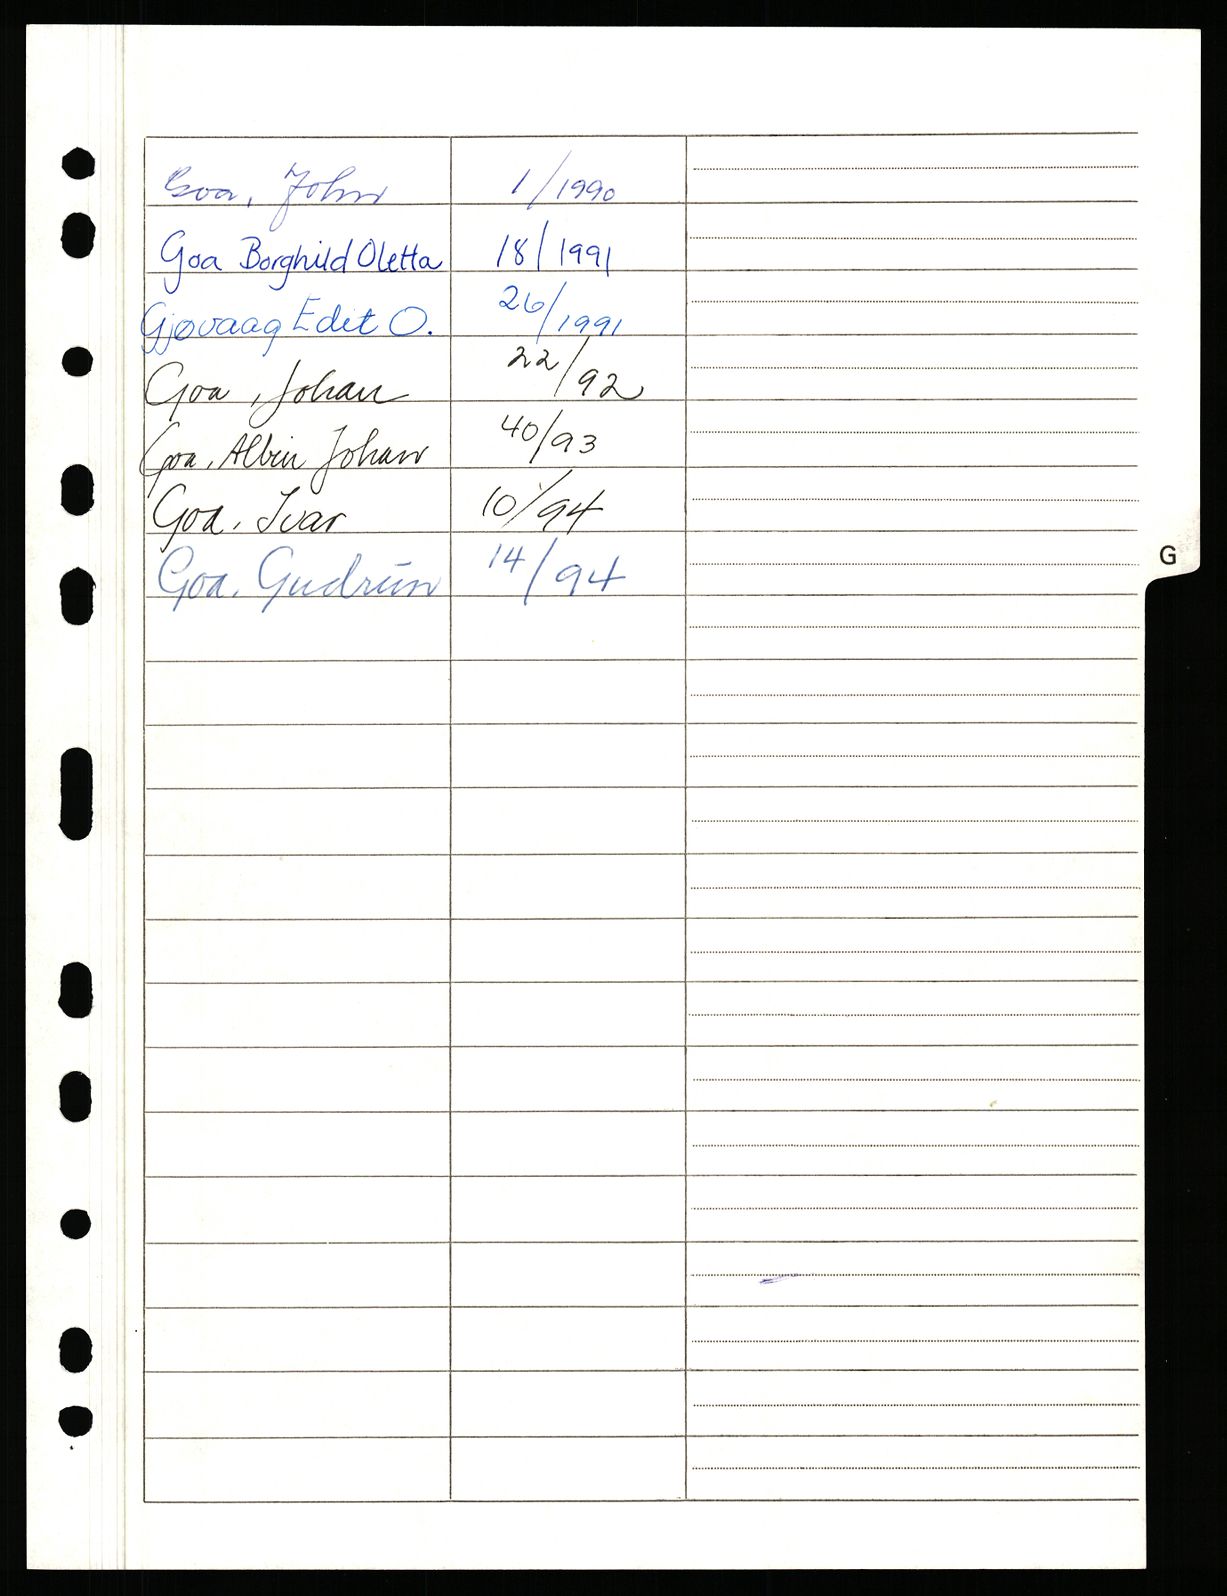 Goa, John 1/1990
Goa Borghild Oletta 18/1991
Gjøvaag Edit O. 26/1991
Goa, Johan 22/92
Goa, Albin Johan 40/93
Goa, Ivar 10/94
G
Goa, Gudrun 14/94